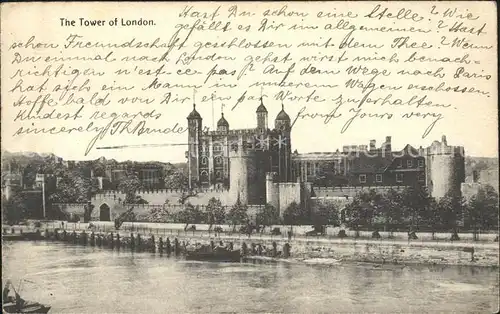 The Tower of London.
Hast Du schon eine Stelle? Wie
gefällt es Dir im allgemeinen? Hast
schon Freundschaft geschlossen mit dem Thee? Wenn
Du einmal nach London gehst wirst mich benach-
richtigen n'est-ce pas? Auf dem Wege nach Paris
hat sich ein Mann in dem Wagen erschossen.
Hoffe bald von Dir ein paar Worte zu erhalten.
Kindest regards from yours very
sincerely